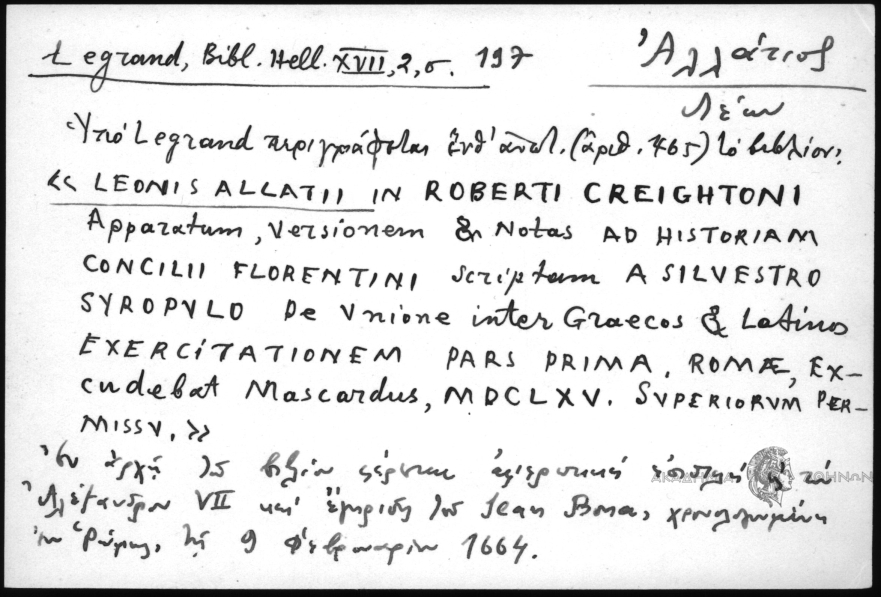 Legrand, Bibl. Hell. XVII, 2, σ. 197
Ἀλλάτιος
Λέων
Ὑπὸ Legrand περιγράφεται ἐνθ' ἀνωτ. (ἀριθ. 465) τὸ βιβλίον:
« LEONIS ALLATII IN ROBERTI CREIGHTONI
Apparatum, Versionem & Notas AD HISTORIAM
CONCILII FLORENTINI scriptam A SILVESTRO
SYROPVLO De Vnione inter Graecos & Latinos
EXERCITATIONEM PARS PRIMA. ROMÆ, EX–
cudebat Mascardus, MDCLXV. SVPERIORVM PER–
MISSV. »
Ἐν ἀρχῇ τοῦ βιβλίου φέρεται ἀφιερωτικὴ ἐπιστολὴ
Ἀλέξανδρον VII καὶ ἔγκρισις τοῦ Jean Bona, χρονολογημένη
ἐν Ῥώμῃ, τῇ 9 Φεβρουαρίου 1664.
ΑΚΑΔΗΜΙΑ ΑΘΗΝΩΝ